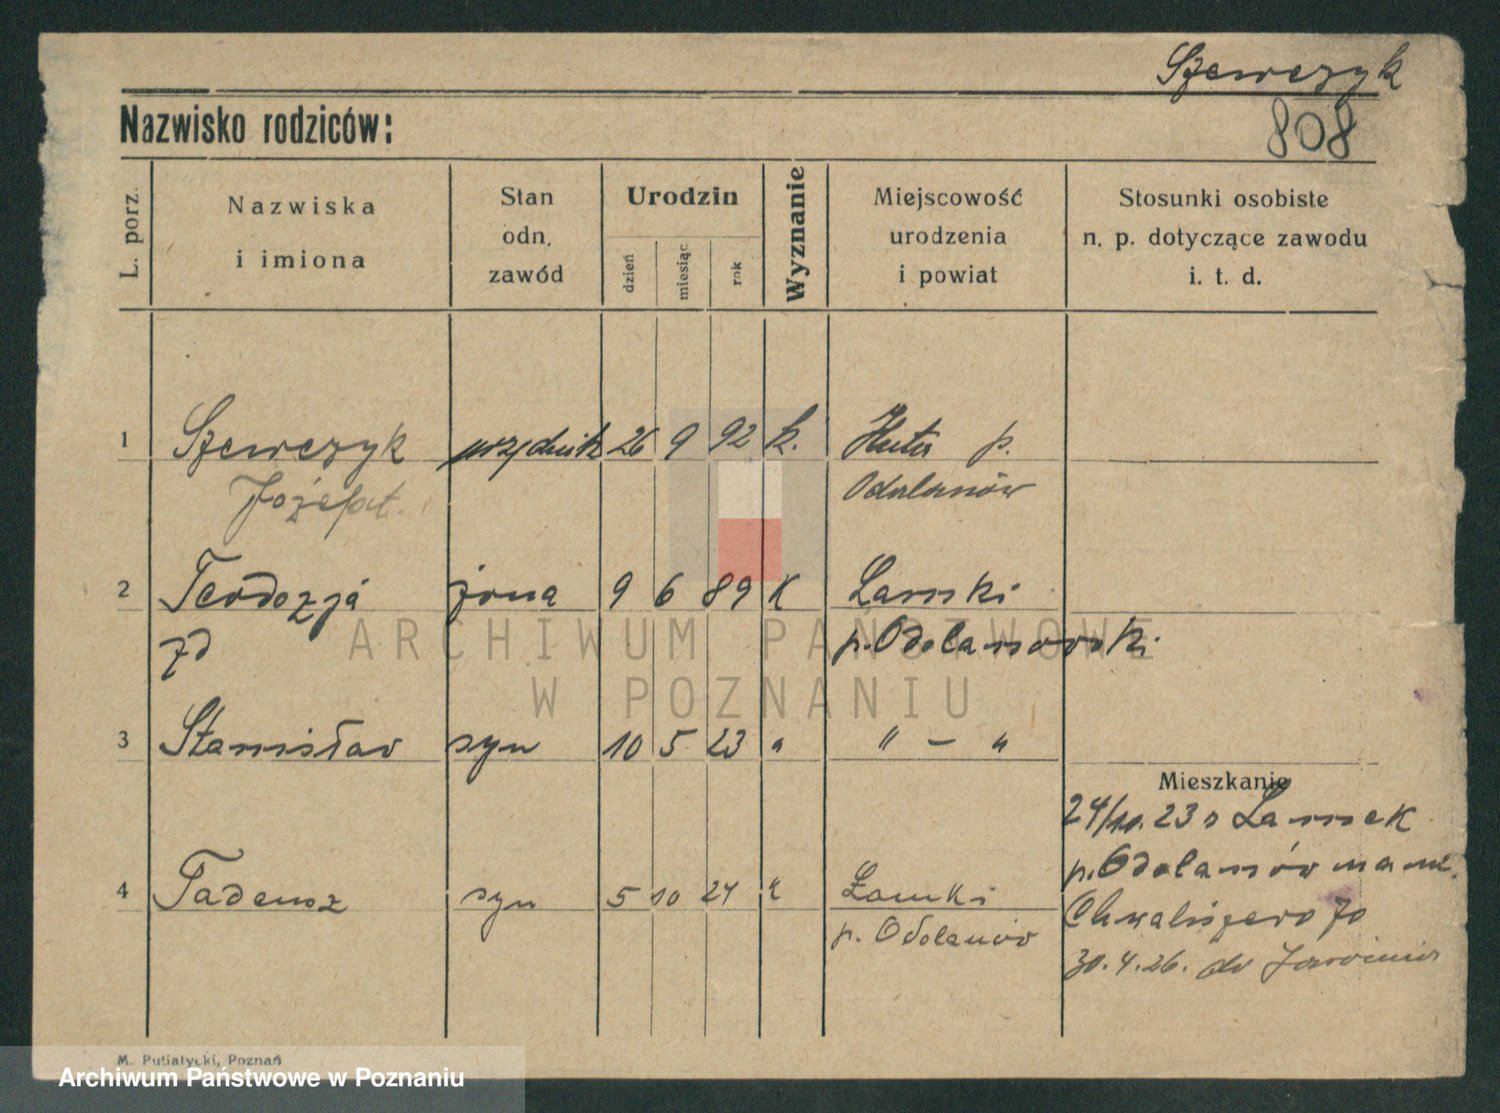 Szewczyk
808
Nazwisko rodziców:
L. porz.
Nazwiska
i imiona
Stan
odn.
zawód
Urodzin
dzień
miesiąc
rok
Wyznanie
Miejscowość
urodzenia
i powiat
Stosunki osobiste
n. p. dotyczące zawodu
i. t. d.
1 Szewczyk urzędnik 26 9 92 k. Huta p.
Józefat. Odolanów
2 Teodozja żona 9 6 89 k Lamki
p. Odolanowski
3 Stanisław syn 10 5 23 " " — "
Mieszkanie
24/10.23 z Lamek
p. Odolanów
4 Tadeusz syn 5 10 24 " Łamki
p. Odolanów
Chwaliszewo 70
30.4.26. do Jarocina
M. Putiatycki, Poznań
ARCHIWUM PAŃSTWOWE
W POZNANIU
Archiwum Państwowe w Poznaniu